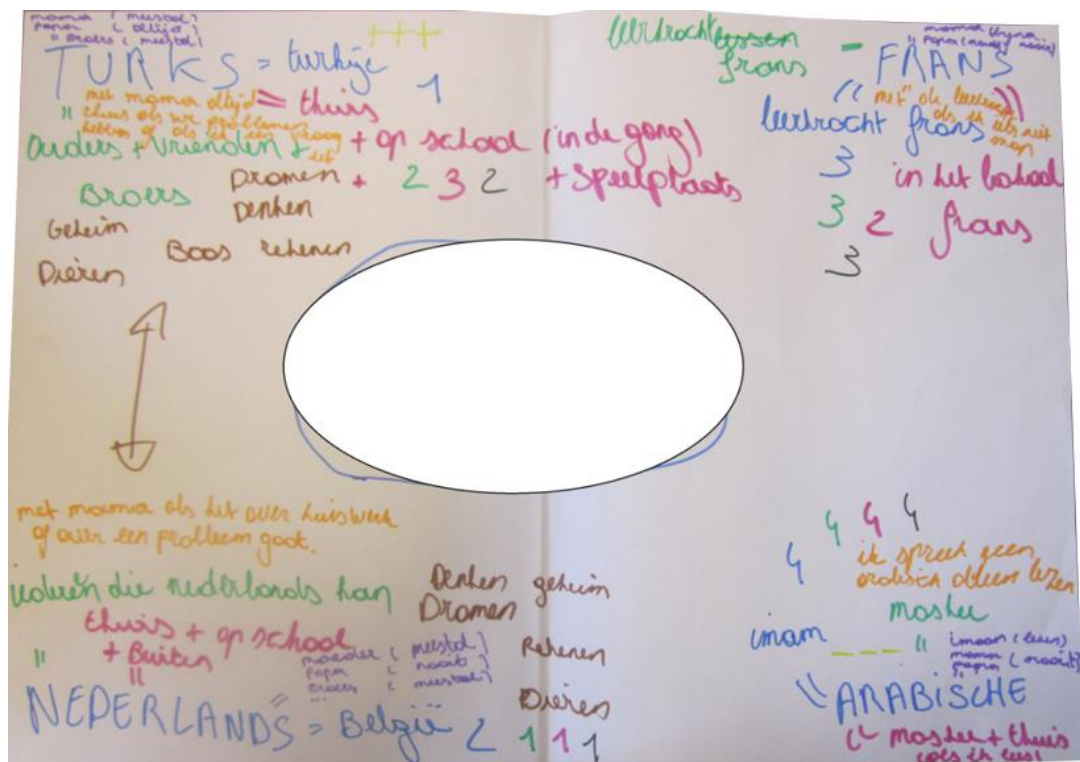 mama (meestal)
papa (altijd)
" broers (meestal)
+++
TURKS = turkije
1
met mama altijd
thuis als we problemen
hebben of als ik een vraag
= thuis
ouders + vrienden +
+ op school (in de gang)
+ speelplaats
Broers
Dromen +
Denken
2 3 2
Geheim
Boos rekenen
Dieren
leerkracht lessen
frans
-
mama
" papa (nooit)
FRANS
" met de leerkracht
als ik iets niet
leerkracht frans
3
in het lokaal
frans
3 2
3
met mama als het over huiswerk
of over een probleem gaat.
iedereen die nederlands kan
Denken geheim
Dromen
Rekenen
Dieren
thuis + op school
+ Buiten
"
moeder (meestal)
papa (nooit)
broers (meestal)
NEDERLANDS = België 2 1 1 1
4 4 4 4
ik spreek geen
arabisch alleen lezen
moskee
imam
_ _ _
"
imaan (leren)
mama (nooit)
papa "
ARABISCHE
moskee + thuis
(als ik lees)